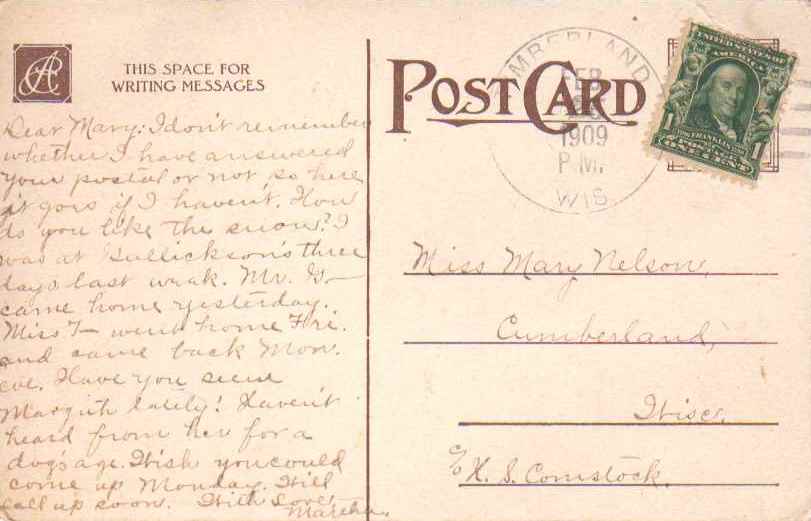 THIS SPACE FOR
WRITING MESSAGES
POST CARD
CUMBERLAND
FEB
1909
P.M.
WIS.
UNITED STATES OF
AMERICA
1 FRANKLIN 1
ONE CENT
Dear Mary: I don't remember
whether I have answered
your postal or not so here
it goes if I haven't. How
do you like the snow? I
was at Gullickson's three
days last week. Mr. G—
came home yesterday.
Miss T— went home Fri.
and came back Mon.
eve. Have you seen
lately? Haven't
heard from her for a
dog's age. Wish you could
come up Monday. Will
call up soon. With Love
Martha.
Miss Mary Nelson,
Cumberland,
Wisc.
c/o H. S. Comstock.